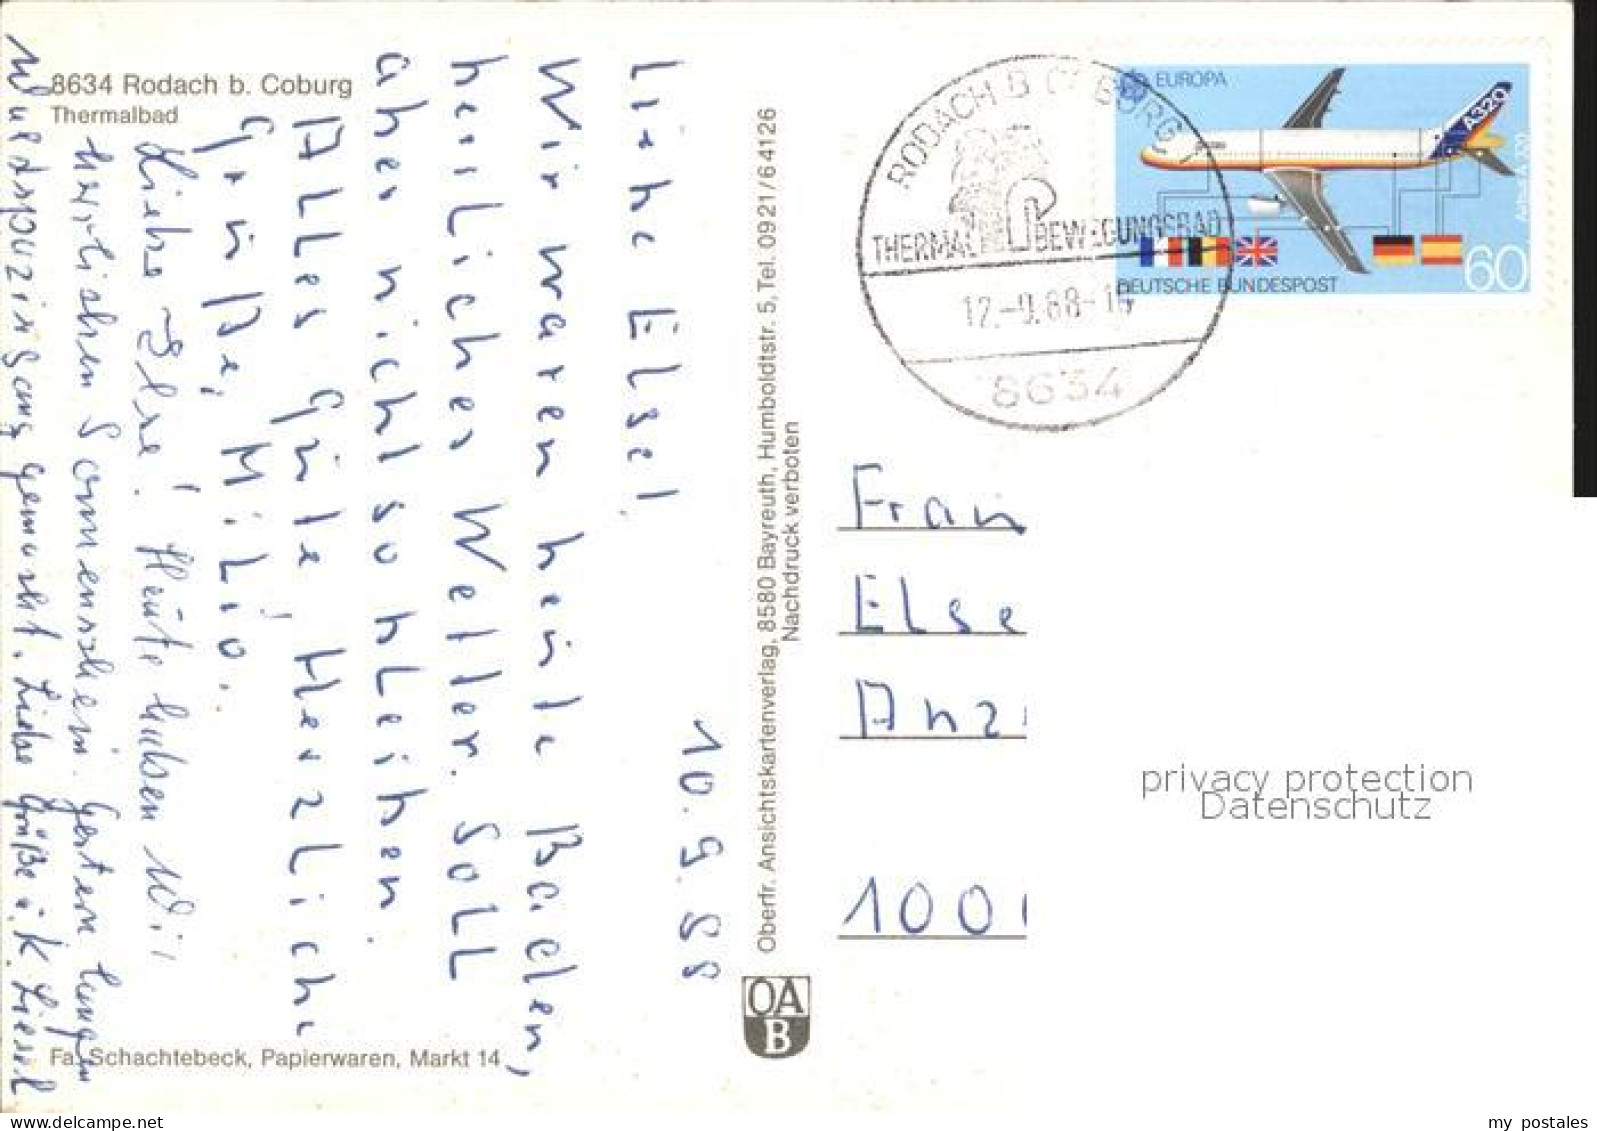 8634 Rodach b. Coburg
Thermalbad
10.9.88
Liebe Else!
Wir waren heute Baden,
herrliches Wetter. Soll
aber nicht so bleiben.
Alles Gute, Herzliche
Grüße, Milio.
Liebe Else! Heute haben wir
herrlichen Sonnenschein. Gestern langen
Waldspaziergang gemacht. Liebe Grüße u. K. Liesel
Fa. Schachtebeck, Papierwaren, Markt 14
Oberfr. Ansichtskartenverlag, 8580 Bayreuth, Humboldtstr. 5, Tel. 0921/64126
Nachdruck verboten
OA
B
RODACH B COBURG 1
THERMAL BEWEGUNGSBAD
12.-9.88-16
8634
EUROPA
A320
Airbus A 320
60
DEUTSCHE BUNDESPOST
Frau
Else
Anz
100
privacy protection
Datenschutz
my postales